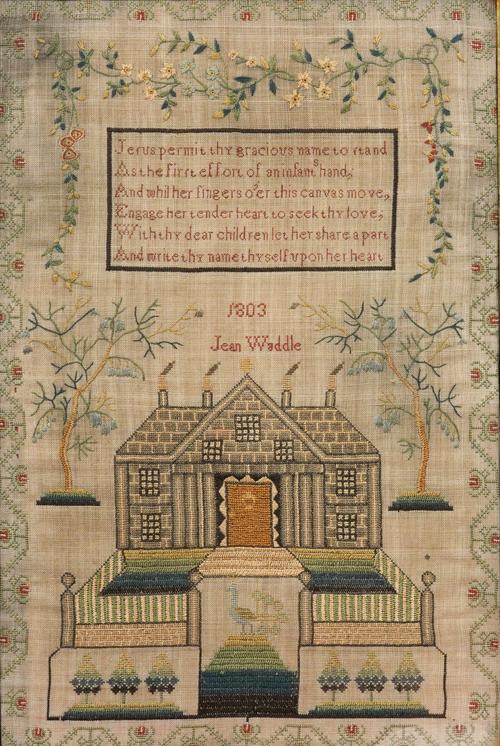 Jesus permit thy gracious name to stand
As the first effort of an infant's hand,
And whil her fingers o'er this canvas move,
Engage her tender heart to seek thy love,
With thy dear children let her share a part
And write thy name thyself upon her heart
1803
Jean Waddle